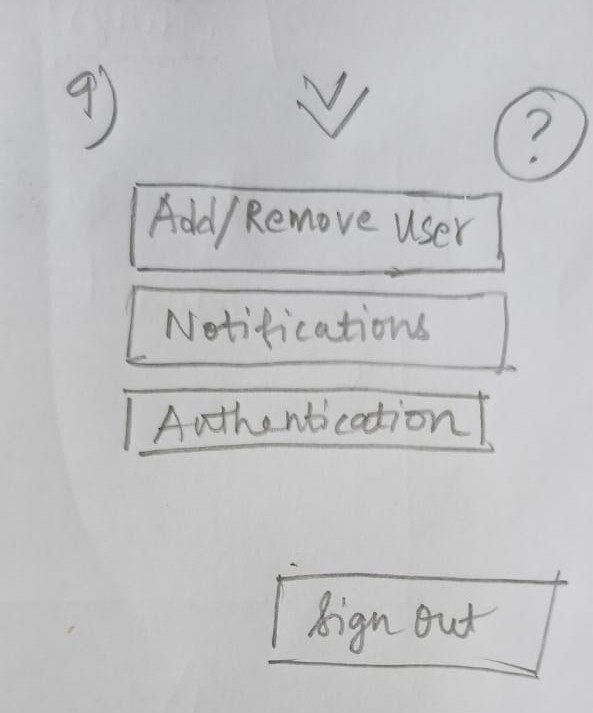 9)
?
Add/Remove User
Notifications
Authentication
Sign Out